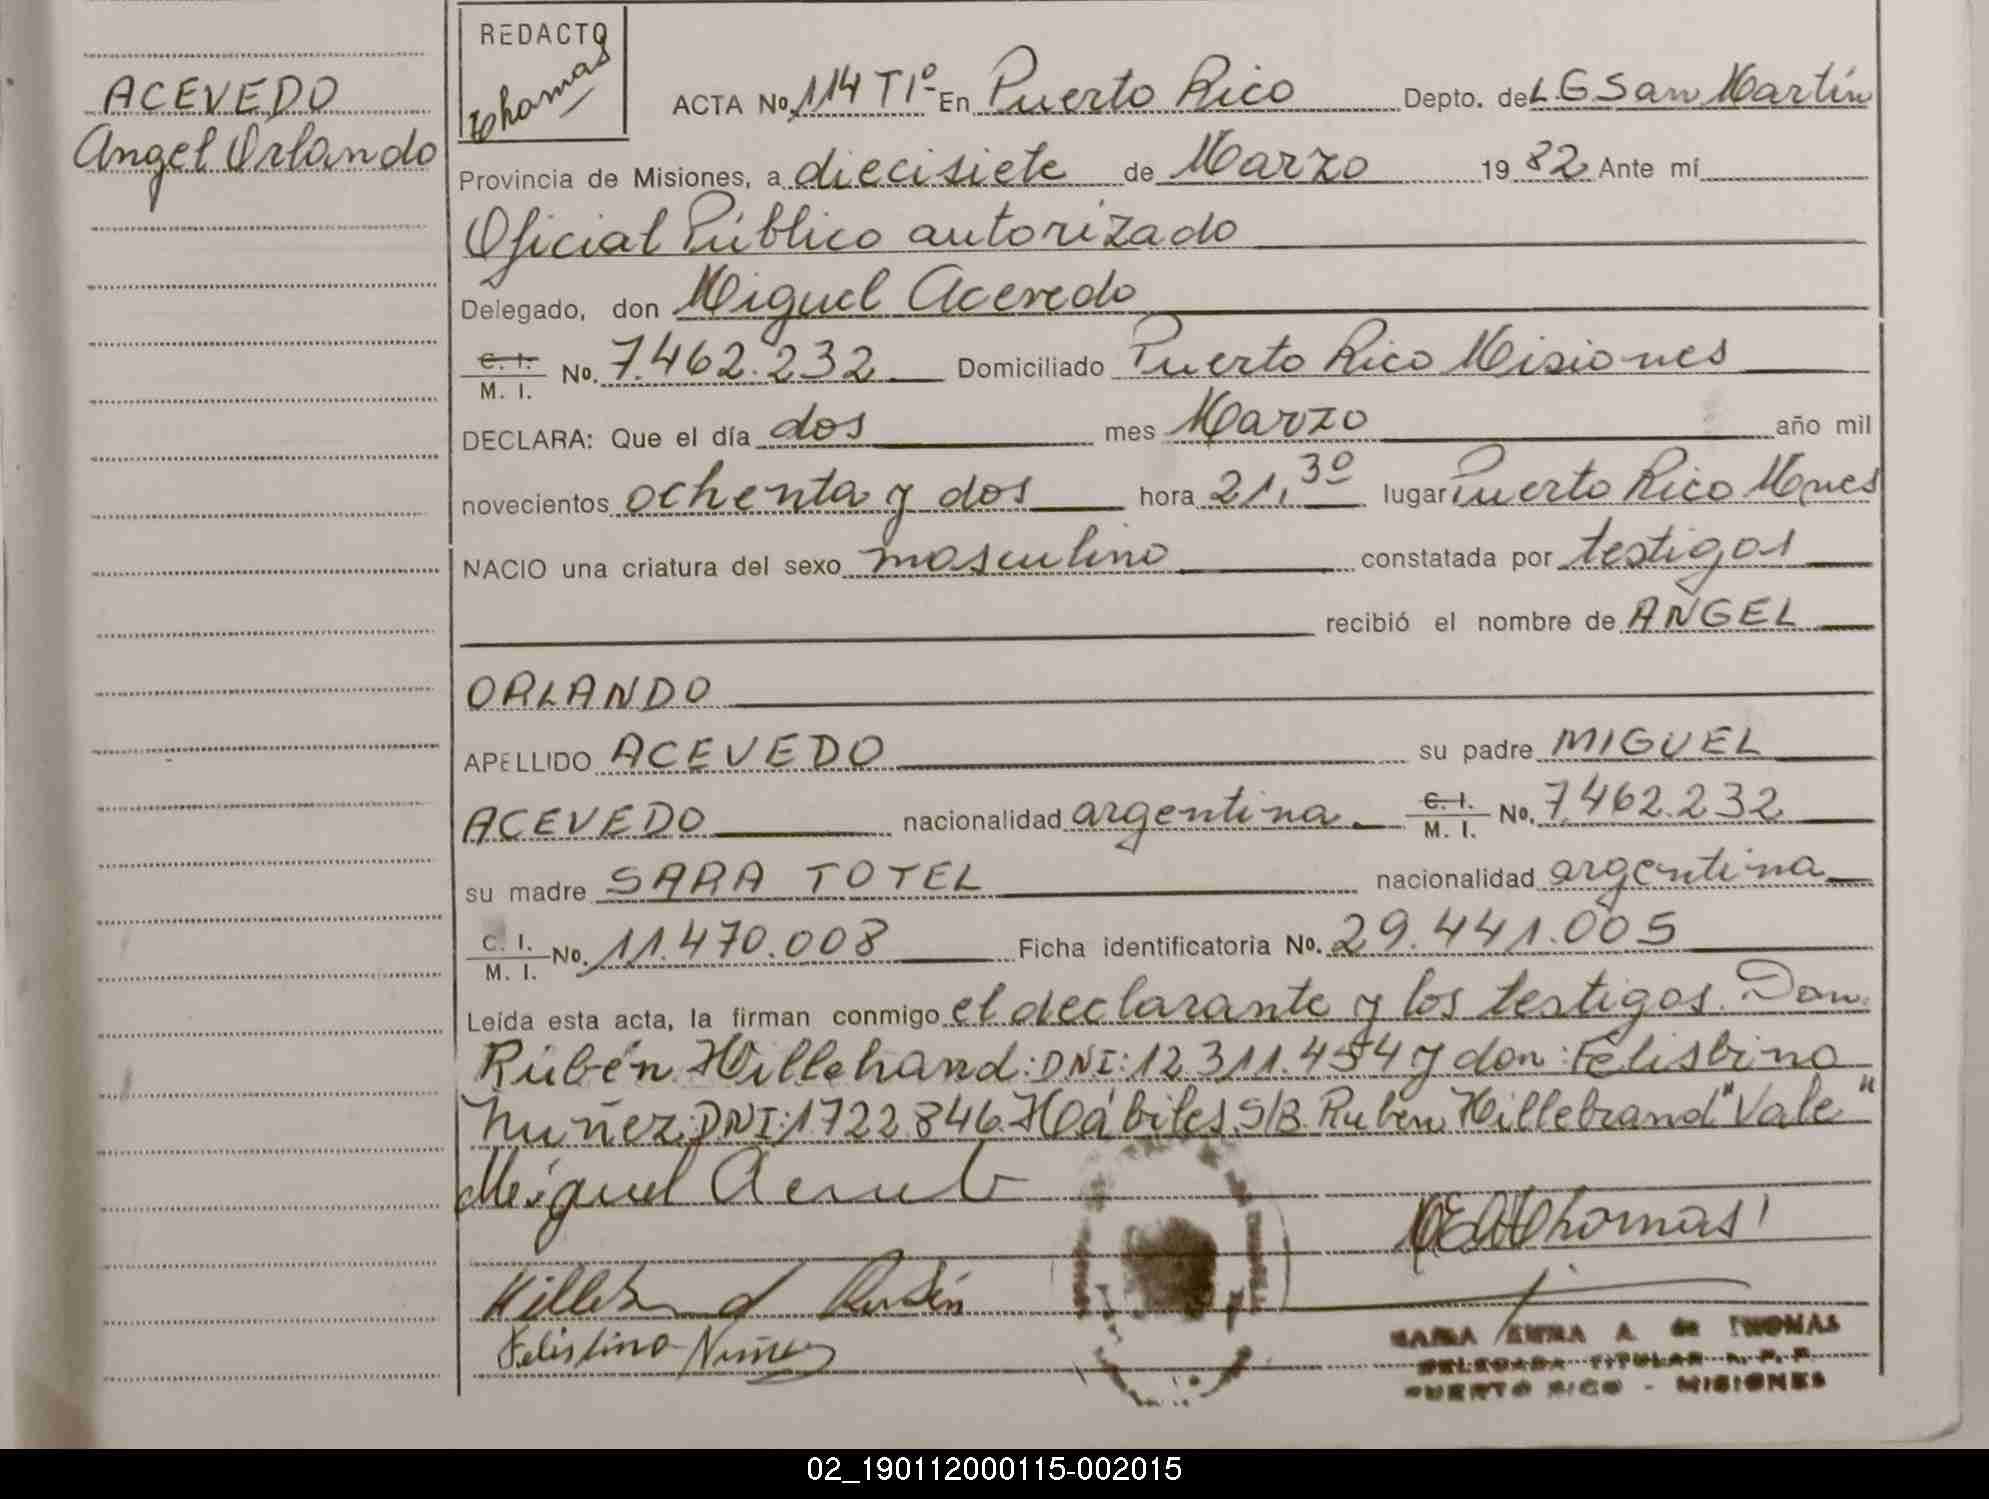 ACEVEDO
Angel Orlando
REDACTO
Thomas
ACTA No. 114 T1º En Puerto Rico Depto. de L.G San Martín
Provincia de Misiones, a diecisiete de Marzo 1982 Ante mí
Oficial Público autorizado
Delegado, don Miguel Acevedo
C. I. / M. I. No. 7.462.232 Domiciliado Puerto Rico Misiones
DECLARA: Que el día dos mes Marzo año mil
novecientos ochenta y dos hora 21,30 lugar Puerto Rico Mnes
NACIO una criatura del sexo masculino constatada por testigos
recibió el nombre de ANGEL
ORLANDO
APELLIDO ACEVEDO su padre MIGUEL
ACEVEDO nacionalidad argentina C. I. / M. I. No. 7.462.232
su madre SARA TOTEL nacionalidad argentina
C. I. / M. I. No. 11.470.008 Ficha identificatoria No. 29.441.005
Leída esta acta, la firman conmigo el declarante y los testigos. Don
Rubén Hillehand: DNI: 12.311.454 y don: Felisbino
Nuñez: DNI: 1722846 Hábiles S/B. Ruben Hillebrand "Vale"
Miguel Acevedo
Hillebrand Rubén
Felisbino Nuñez
MARIA EMMA A. de THOMAS
DELEGADA TITULAR R. P. P.
PUERTO RICO - MISIONES
02_190112000115-002015